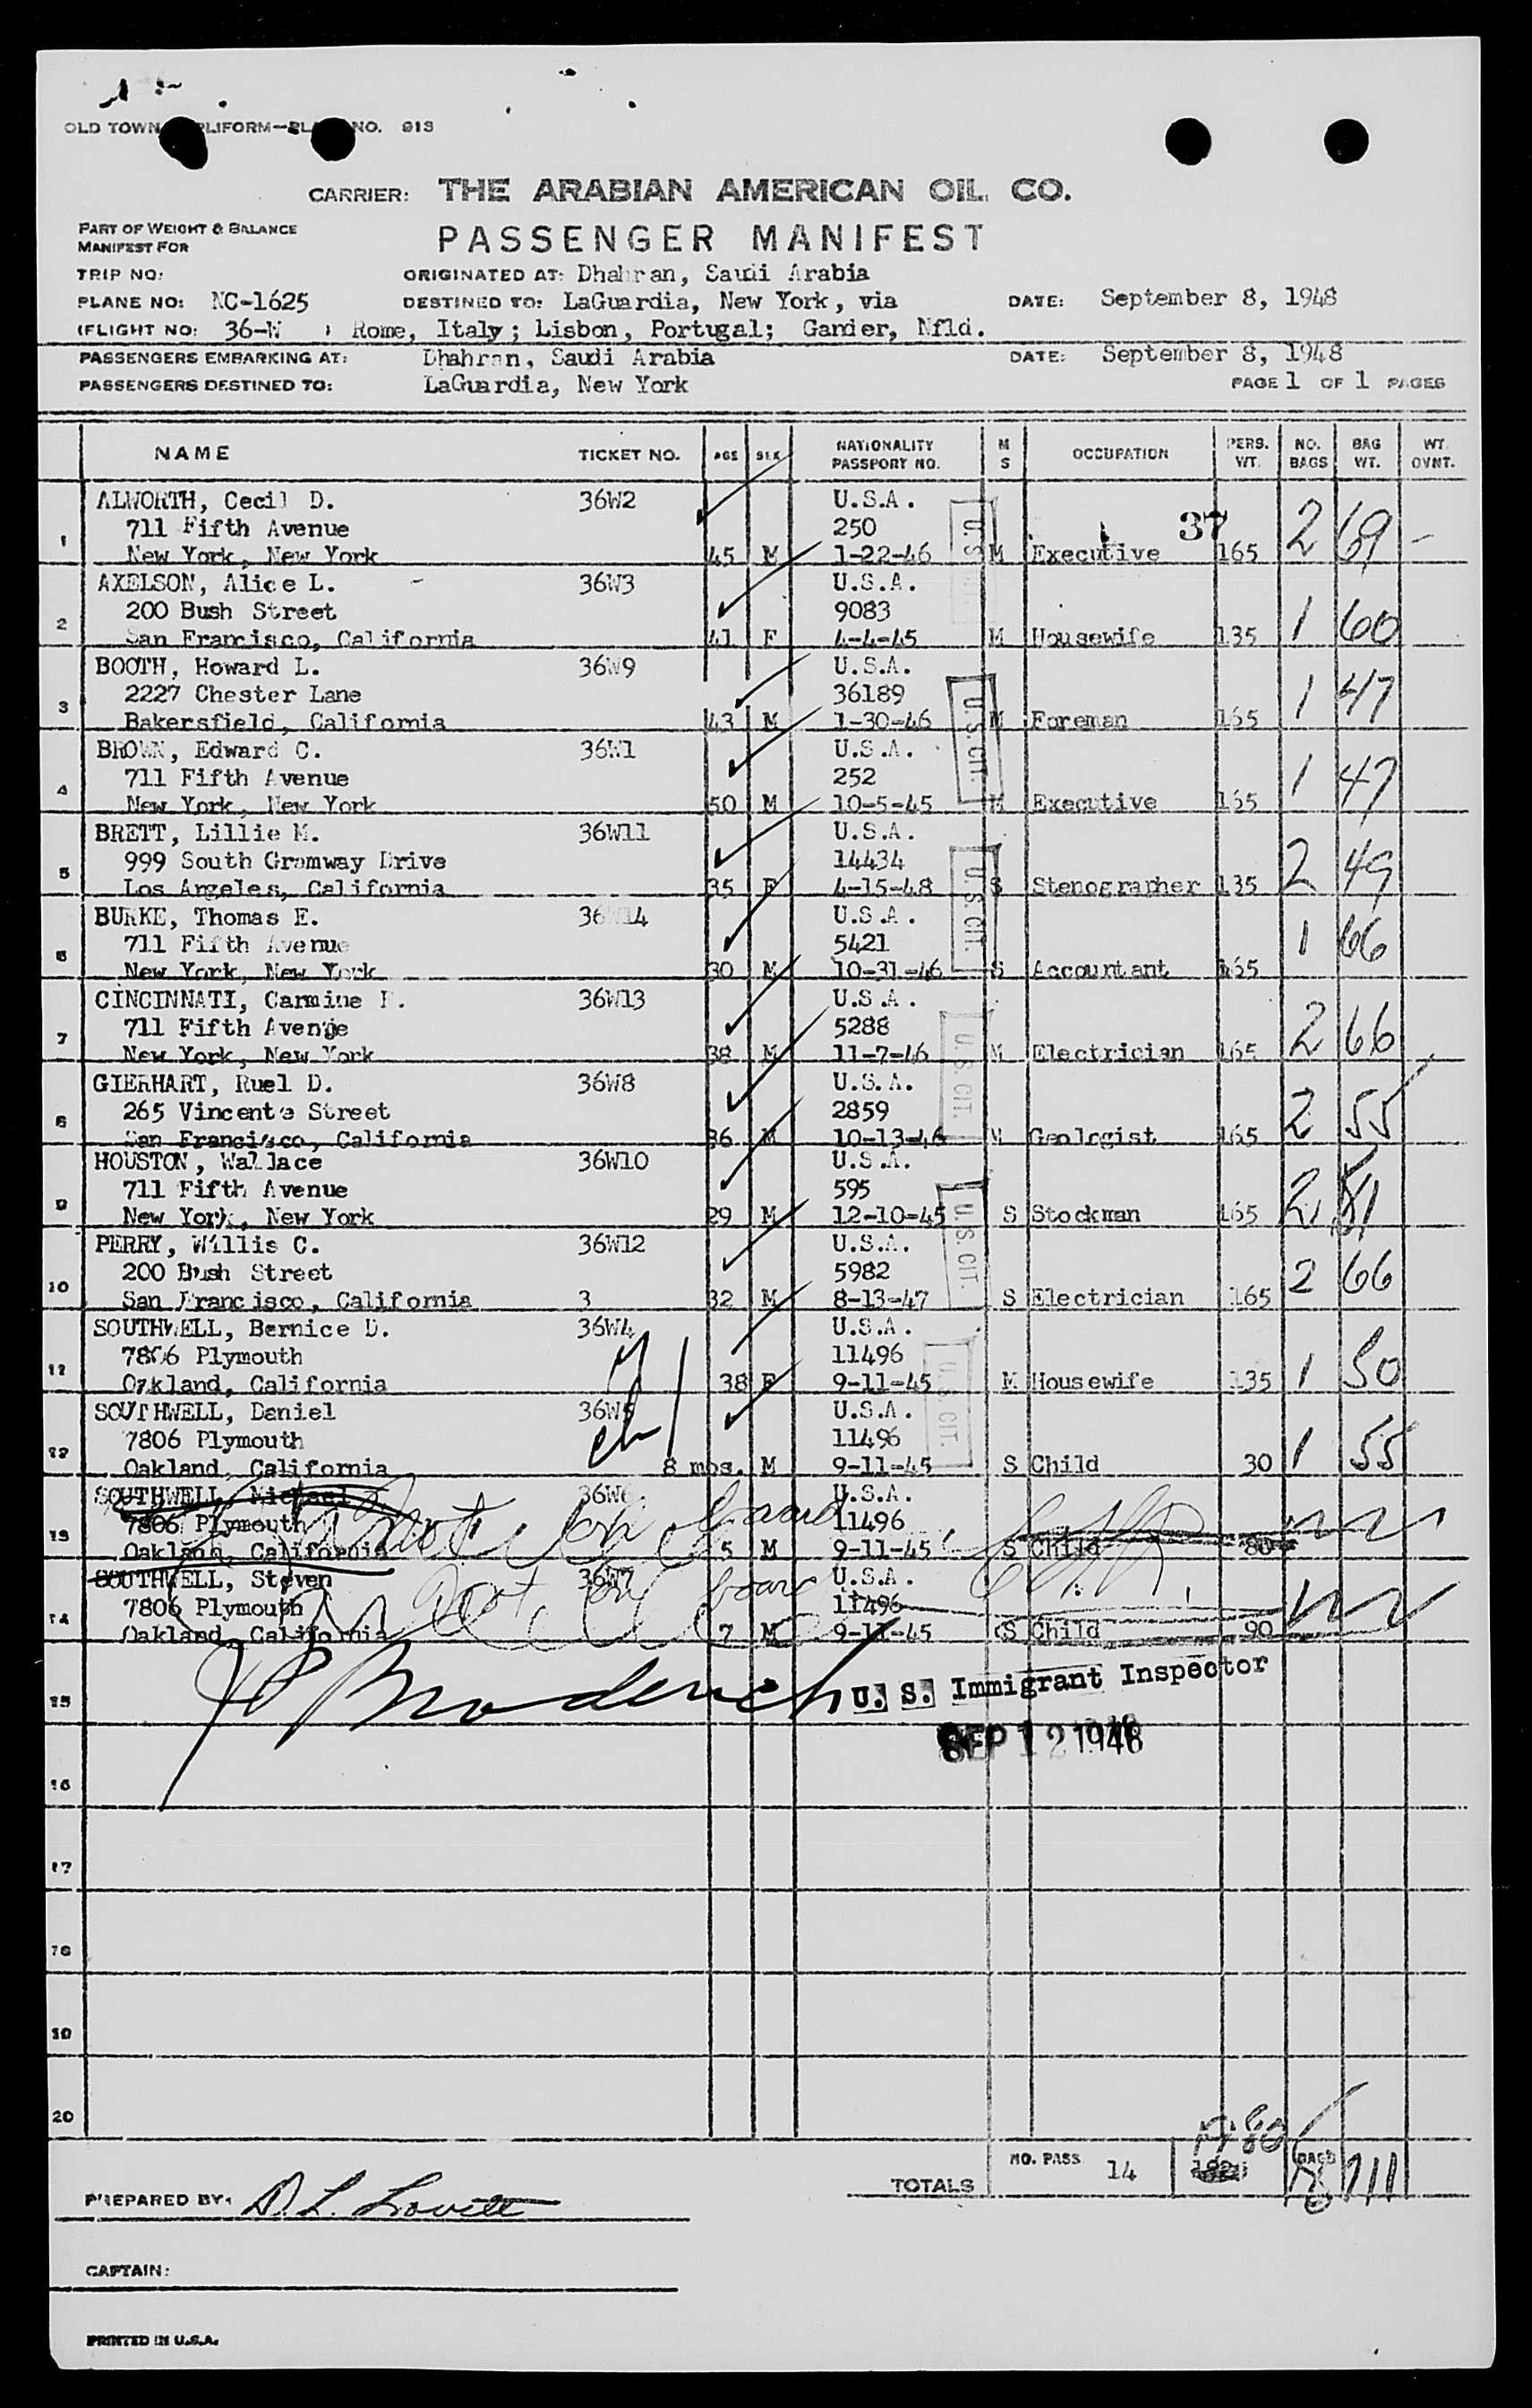 OLD TOWN NO. 913
CARRIER: THE ARABIAN AMERICAN OIL CO.
PART OF WEIGHT & BALANCE
MANIFEST FOR
PASSENGER MANIFEST
TRIP NO: ORIGINATED AT: Dhahran, Saudi Arabia
PLANE NO: NC-1625 DESTINED TO: LaGuardia, New York, via DATE: September 8, 1948
(FLIGHT NO: 36-W ) Rome, Italy; Lisbon, Portugal; Gander, Nfld.
PASSENGERS EMBARKING AT: Dhahran, Saudi Arabia DATE: September 8, 1948
PASSENGERS DESTINED TO: LaGuardia, New York PAGE 1 OF 1 PAGES
NAME TICKET NO. AGE SEX NATIONALITY PASSPORT NO. M S OCCUPATION PERS. WT. NO. BAGS BAG WT. WT. OVNT.
ALWORTH, Cecil D. 36W2 U.S.A.
711 Fifth Avenue 250 37
1 New York, New York 45 M 1-22-46 M Executive 165 2 69 -
AXELSON, Alice L. - 36W3 U.S.A.
200 Bush Street 9083
2 San Francisco, California 41 F 4-4-45 M Housewife 135 1 60
BOOTH, Howard L. 36W9 U.S.A.
2227 Chester Lane 36189
3 Bakersfield, California 43 M 1-30-46 M Foreman 165 1 47
U.S. CIT.
BROWN, Edward C. 36W1 U.S.A.
711 Fifth Avenue 252
4 New York, New York 50 M 10-5-45 M Executive 165 1 47
BRETT, Lillie M. 36W11 U.S.A.
999 South Gramway Drive 14434
5 Los Angeles, California 35 F 4-15-48 S Stenographer 135 2 49
U.S. CIT.
BURKE, Thomas E. 36W14 U.S.A.
711 Fifth Avenue 5421
6 New York, New York 30 M 10-31-46 S Accountant 165 1 66
CINCINNATI, Carmine 36W13 U.S.A.
711 Fifth Avenue 5288
7 New York, New York 38 M 11-7-46 M Electrician 165 2 66
U.S. CIT.
GIERHART, Ruel D. 36W8 U.S.A.
265 Vincente Street 2859
8 San Francisco, California 36 M 10-13-46 M Geologist 165 2 55
HOUSTON, Wallace 36W10 U.S.A.
711 Fifth Avenue 595
9 New York, New York 29 M 12-10-45 S Stockman 165 2 81
U.S. CIT.
PERRY, Willis C. 36W12 U.S.A.
200 Bush Street 5982
10 San Francisco, California 3 32 M 8-13-47 S Electrician 165 2 66
SOUTHWELL, Bernice D. 36W4 U.S.A.
7806 Plymouth 11496
11 Oakland, California 38 F 9-11-45 M Housewife 135 1 50
U.S. CIT.
SOUTHWELL, Daniel 36W5 U.S.A.
7806 Plymouth 11496
12 Oakland, California 8 mos. M 9-11-45 S Child 30 1 55
SOUTHWELL, Michael 36W6 U.S.A.
7806 Plymouth not on board 11496
13 Oakland, California 5 M 9-11-45 S Child 80
SOUTHWELL, Steven 36W7 U.S.A.
7806 Plymouth not on board 11496
14 Oakland, California 7 M 9-11-45 S Child 90
15 U. S. Immigrant Inspector
SEP 12 1948
16
17
18
19
20
TOTALS NO. PASS 14 BAGS 18 711
PREPARED BY: D. L. Lovett
CAPTAIN:
PRINTED IN U.S.A.